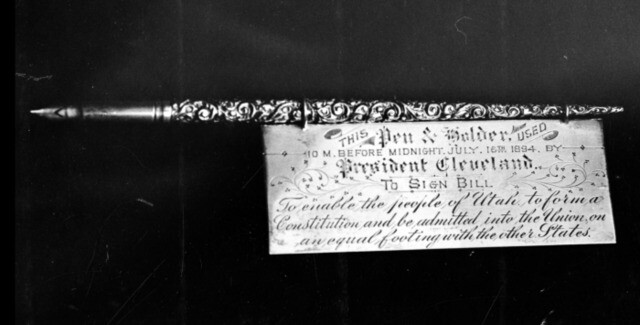 THIS Pen & Holder, USED
10 M. BEFORE MIDNIGHT. JULY. 16TH 1894. BY
President Cleveland..
TO SIGN BILL
To enable the people of Utah to form a
Constitution and be admitted into the Union, on
an equal footing with the other States.